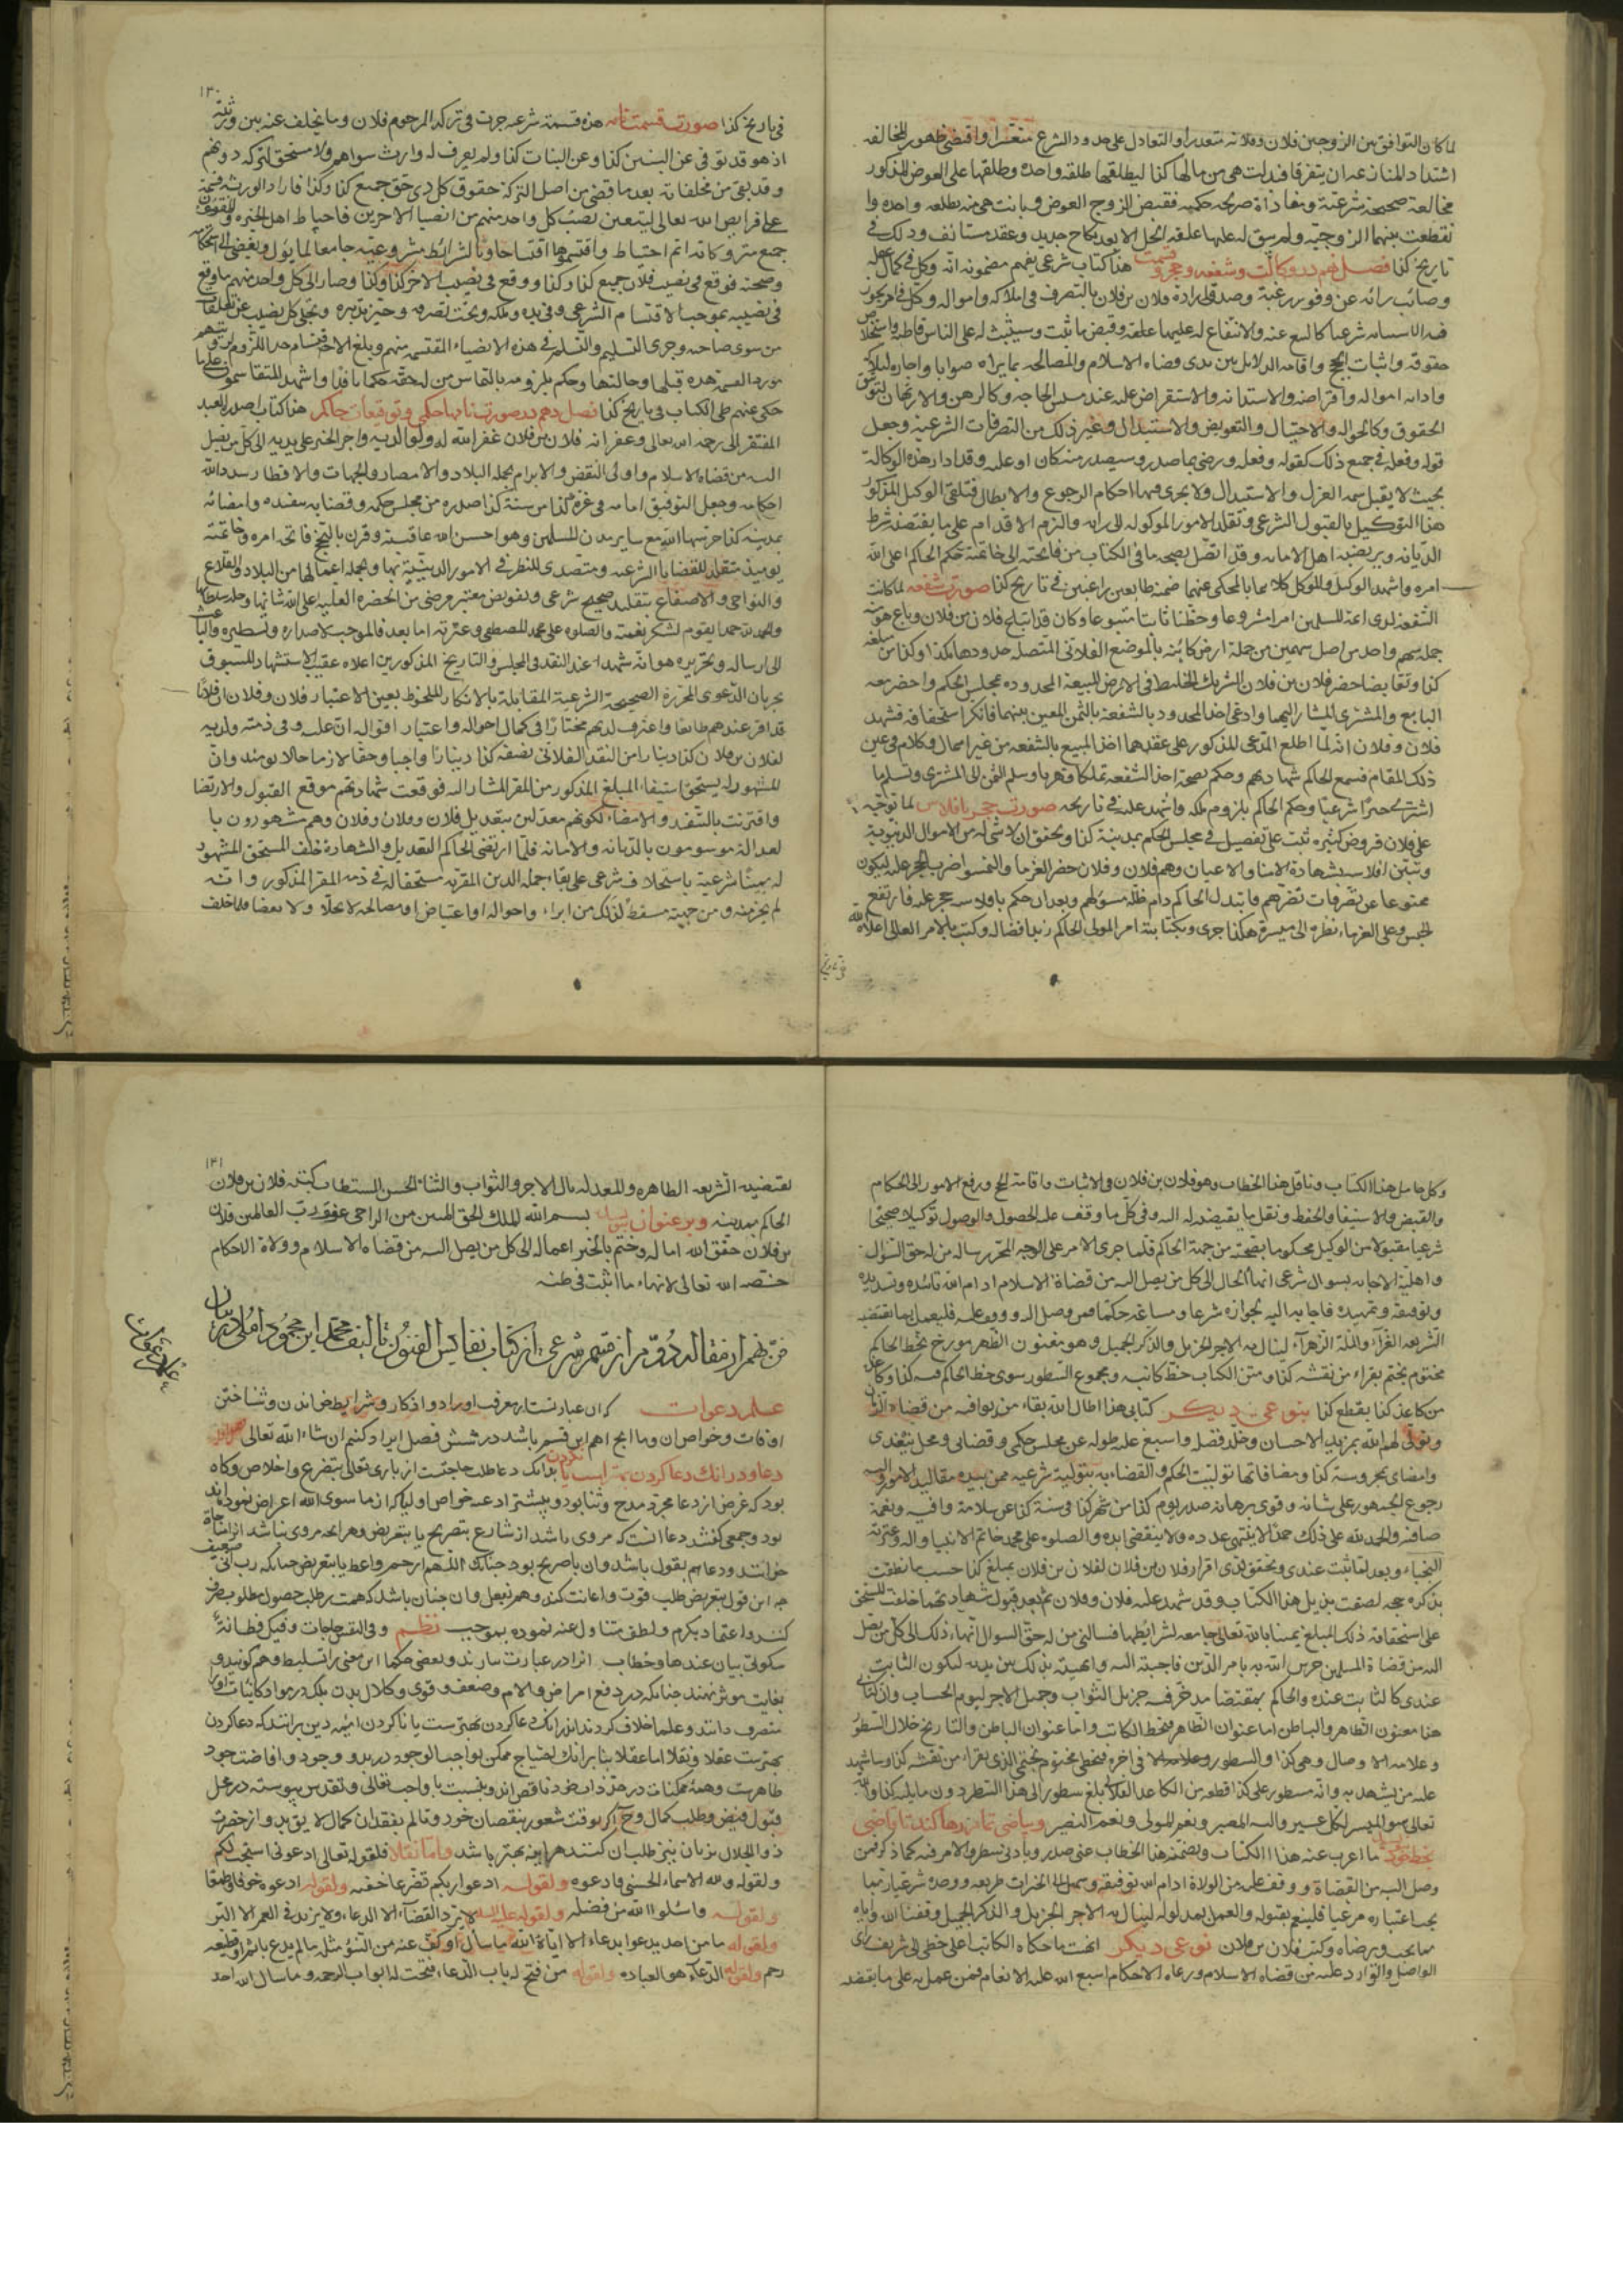 لما كان التوافق بين الزوجين فلان وفلانه متعذرا والتعادل على حدود الشرع متعسرا واقتضى ظهور المخالفه
اشتداد المنازعه ان يتفرقا فبذلت هى من مالها كذا ليطلقها طلقه واحده وطلقها على العوض المذكور
مخالعة صحيحة شرعية ومفاداة صريحه حكميه فقبض الزوج العوض وبانت هى منه بطلقه واحده وا
نقطعت بينهما الزوجيه ولم يبق له عليها علقه الحل الا بعد نكاح جديد وعقد مستانف وذلك فى
تاريخ كذا فصل نهم در وكالت وشفعه وحجر وقسمت هذا كتاب شرعى يفهم مضمونه انه وكل فى كمال عقله
وصائب رائه عن وفور رغبة وصدق اراده فلان بن فلان بالتصرف فى املاكه وامواله وكل فى امر يجوز
حقوقه واثبات الحجج واقامه الدلايل بين يدى قضاه الاسلام والمصالحه بما يراه صوابا واجاره املاكه
الحقوق وكالحواله والاحتيال والتعويض والاستبدال وغير ذلك من التصرفات الشرعيه وجعل
قوله وفعله فى جميع ذلك كقوله وفعله ورضى بما صدر وسيصدر منه كان او عليه وقد ادار هذه الوكالة
بحيث لا يقبل سمه العزل والاستبدال ولا يجرى فيها احكام الرجوع والابطال فتلقى الوكيل المذكور
هذا التوكيل بالقبول الشرعى وتقلد الامور الموكوله الى رايه والتزم الاقدام على ما يقتضيه شرط
الديانه ويرتضيه اهل الامانه وقد اتصل بصحه ما فى الكتاب من فاتحته الى خاتمته حكم الحاكم اعلى الله
امره واشهد الوكيل والموكل كلاهما بالمحكى عنهما ضمنه طايعين راغبين فى تاريخ كذا صورت شفعه لما كانت
الشفعه لدى ائمة المسلمين امرا مشروعا وحقا ثابتا متبوعا وكان قد ابتاع فلان بن فلان وباع هو منه
جمله سهم واحد من اصل سهمين من جملة ارض كائنه بالموضع الفلانى المتصله حدودها بكذا وكذا من مبلغه
كذا وتقابضا حضر فلان بن فلان الشريك الخليط فى الارض المبيعة المحدوده مجلس الحكم واحضر معه
البايع والمشترى المشار اليهما وادعى اخذ المحدود بالشفعة بالثمن المعين بينهما فانكرا استحقاقه فشهد
فلان وفلان انه لما اطلع المدعى المذكور على عقدهما اخذ المبيع بالشفعه من غير امهال وكلام فى عين
ذلك المقام فسمع الحاكم شهادتهم وحكم بصحة اخذ الشفعه تملكا وقهريا وسلم الثمن الى المشترى وتسلم ما
اشتراه جبرا شرعيا وحكم الحاكم بلزوم ملكه واشهد عليه فى تاريخه صورت حجر بافلاس لما توجه
على فلان قروض كثيره ثبت على تفصيل فى مجلس الحكم بمدينة كذا وتحقق ان لا شى له من الاموال الدنيوية
وتبين افلاسه بشهادة الامنا والاعيان وهم فلان وفلان حضر الغرما والتمسوا ضرب الحجر عليه ليكون
ممنوعا عن تصرفات تضرهم فابتدل الحاكم دام ظله مسؤلهم وبعد ان حكم بافلاسه حجر عليه فارتفع
الحبس وعلى الغرماء نظره الى ميسرة هكذا جرى وبكتابته امر المولى الحاكم زيد افضاله وكتب بالامر العالى اعلاه الله
١٣٠
فى تاريخ كذا صورت قسمت نامه هذه قسمة شرعيه جرت فى تركه المرحوم فلان وما تخلف عنه بين ورثته
اذ هو قد توفى عن البنين كذا وعن البنات كذا ولم يعرف له وارث سواهم ولا مستحق لتركه دونهم
وقد بقى من مخلفاته بعد ما قضى من اصل التركة حقوق كل ذى حق جميع كذا وكذا فاراد الورثه قسمة
على فرايض الله تعالى ليتعين نصيب كل واحد منهم من انصباء الاخرين فاحتاط اهل الخبره والتقوى
جميع متروكاته اتم احتياط واقتسموها اقتساما حاويا لشرائط مشروعيته جامعا لما يؤل ويفضى الى استحكامه
وصحته فوقع فى نصيب فلان جميع كذا وكذا ووقع فى نصيب الاخر كذا وكذا وصار الى كل واحد منهم ما وقع
فى نصيبه بموجب الاقتسام الشرعى وفى يده وملكه وتحت تصرفه وحيز تدبيره وتخلى كل نصيب عن تعلقات
من سوى صاحبه وجرى التسليم والتسلم فى هذه الانصباء المقتسمه منهم
حكى عنهم طى الكتاب فى تاريخ كذا فصل دهم در صورت نامهاء حكمى وتوقيعات حاكم هذا كتاب اصدره العبد
المفتقر الى رحمه الله تعالى وغفرانه فلان بن فلان غفر الله له ولوالديه واجر الخير على يديه الى كل من يصل
اليه من قضاه الاسلام واولى النقض والابرام بجمله البلاد والامصار والجهات والاقطار سدد الله
احكامه وجعل التوفيق امامه فى غره كذا من سنة كذا صدره من مجلس حكمه وقضائه بتنفيذه وامضائه
بمدينة كذا حرسها الله مع ساير مدن المسلمين وهو احسن الله عاقبته وقرن بالنجح فاتحه امره وخاتمته
يومئذ متقلد للقضايا الشرعيه ومتصدى للنظر فى الامور الدينية بها وبجمله اعمالها من البلاد والقلاع
والنواحى والاصقاع بتقليد صحيح شرعى وتفويض معتبر مرضى من الحضره العليه اعلى الله شانها وخلد سلطانها
والحمد لله حمدا يقوم لشكر نعمته والصلوه على محمد المصطفى وعترته اما بعد فالموجب لاصداره وتسطيره والباعث
الى ارساله وتحريره هو انه شهدا عند النقد فى المجلس والتاريخ المذكورين اعلاه عقيب الاستشهاد المسبوق
بجريان الدعوى المحررة الصحيحة الشرعية المقابلة بالانكار الملحوظ بعين الاعتبار فلان وفلان ان فلانا
قد اقر عندهم طايعا واعترف لديهم مختارا فى كمال احواله واعتبار اقواله ان عليه وفى ذمته ولديه
لفلان بن فلان كذا دينارا من النقد الفلانى نصفه كذا دينارا واجبا وحقا لازما حالا يومئذ وان
المشهود له يستحق استيفاء المبلغ المذكور من المقر المشار اليه فوقعت شهادتهم موقع القبول والارتضا
واقترنت بالتنفيذ والامضاء لكونهم معدلين بتعديل فلان وفلان وفلان وهم مشهورون با
لعدالة موسومون بالديانه والامانه فلما ارتضى الحاكم التعديل والشهادة خلف المستحق المشهود
له يمينا شرعية باستحلاف شرعى على بقاء جمله الدين المقر به مستحقا له فى ذمه المقر المذكور وانه
لم يجر منه ومن جهته مسقط لذلك من ابراء واحواله او اعتياض او مصالحه لا بحلا ولا بعضا فلما حلف
وكل حامل هذا الكتاب وناقل هذا الخطاب وهو فلان بن فلان فى الاثبات واقامة الحجج ورفع الامور الى الحكام
والقبض والاستيفا والحفظ ونقل ما يقبضه له اليه وفى كل ما وقف عليه الحصول والوصول توكيلا صحيحا
شرعيا مقبولا من الوكيل محكوما بصحته من جهة الحاكم فلما جرى الامر على الوجه المحرر رساله من له حق السؤال
واهلية الاجابه بسوال شرعى انهاء الحال الى كل من يصل اليه من قضاة الاسلام ادام الله تائيده وتسديده
الشريعه الغراء والملة الزهراء لينال به الاجر الجزيل والذكر الجميل وهو معنون الظهر مورخ بخط الحاكم
مختوم بختم يقراء من نقشه كذا ومتن الكتاب خط كاتبه ومجموع السطور سوى خط الحاكم فيه كذا وكان
من كاغذ كذا بقطع كذا بنوعى ديكر كتابى هذا اطال الله بقاء من يوافيه من قضاة الزمان
وتولى لهم الله بمزيد الاحسان وخلد فضله واسبغ عليه طوله عن مجلس حكمى وقضائى ومحل تنفيذى
وامضائى بمحروسة كذا ومضافاتها توليت الحكم والقضاء به بتولية شرعيه ممن بيده مقاليد الامور واليه
رجوع الجمهور على شانه وقوى برهانه صدر يوم كذا من شهر كذا فى سنة كذا عن سلامة وافيه ونعمة
صافيه والحمد لله على ذلك حمدا لا ينتهى عدده ولا ينقضى ابده والصلوه على محمد خاتم الانبيا واله وعترته
النجباء وبعد لقد ثبت عندى وتحقق لدى اقرار فلان بن فلان لفلان بن فلان بمبلغ كذا حسب ما نطقت
بذكره حجه لصقت بذيل هذا الكتاب وقد شهد عليه فلان وفلان ثم بعد قبول شهادتهما حلفت المستحق
على استحقاقه ذلك المبلغ يمينا بالله تعالى جامعه لشرائطها فسالنى من له حق السوال انهاء ذلك الى كل من يصل
اليه من قضاة المسلمين حرس الله به بامر الدين فاجبته اليه وانهيته بذلك بين يديه ليكون الثابت
عندى كالثابت عنده والحاكم بمقتضاه مدخر فيه جزيل الثواب وجميل الاجر ليوم الحساب وان كتابى
هذا معنون الظاهر والباطن اما عنوان الظاهر فبخط الكاتب واما عنوان الباطن والتاريخ خلال السطور
تعالى هو الميسر لكل عسير واليه المصير ونعم المولى ونعم النصير
وصل اليه من القضاة ووقف عليه من الولاة ادام الله توفيقه وسهل الى الخيرات طريقه
بما يحب ويرضاه وكتب فلان بن فلان نوعى ديكر انهيت ما حكاه الكاتب اعلى خطى الى شريف راى
الواصل والوارد عليه من قضاه الاسلام ورعاه الاحكام اسبغ الله عليه الانعام فمن عمل به على ما يقتضيه
١٣١
تقتضيه الشريعه الطاهره والمعدله نال الاجر والثواب والثناء الحسن المستطاب كتبه فلان بن فلان
الحاكم بمدينه وبر عنوان بنويسد بسم الله الملك الحق المبين من الراجى عفو ربه رب العالمين فلان
بن فلان حقق الله اماله وختم بالخير اعماله الى كل من يصل اليه من قضاه الاسلام وولاة الاحكام
خصه الله تعالى لانهاء ما اثبت فى طيه
فن نهم از مقاله دوم از قسم شرعى از كتاب نفايس الفنون تاليف محمد ابن محمود املى در بيان
علم دعوات
علم دعوات كه ان عبارتست از معرفت اوراد واذكار وشرايط خواندن وشناختن
اوقات وخواص ان وما انچ اهم اين قسم باشد در شش فصل ايراد كنيم ان شاء الله تعالى فصل اول
دعا ودر انك دعا كردن بهتر است يا نكردن بدانك دعا طلب حاجتست از بارى تعالى بتضرع واخلاص وكاه
بود كه غرض از دعا مجرد مدح وثنا بود وبيشتر ادعيه خواص واوليا كه از ما سوى الله اعراض نموده اند
بود وجمعى كفتند دعا انست كه مروى باشد از شارع بتصريح يا بتعريض وهر انچه مروى نباشد انرا مناجاة
خوانند ودعا هم بقول باشد وان يا صريح بود چنانك اللهم ارحم واعط يا بتعريض چنانكه رب انى ضعيف
چه اين قول بتعريض طلب قوت واعانت كند وهم بفعل وان چنان باشد كه همت بر طلب حصول مطلوب صرف
كند واعتماد بكرم ولطف متناول عنه نموده بموجب نظم وفى النفس حاجات وفيك فطانة
سكوتى بيان عندها وخطاب انرا در عبارت نيارند وبعضى حكما اين معنى را تسليط وهم كويند و
بغايت موثر نهند چنانكه در دفع امراض والام وضعف وقوى وكلال بدن بلك در مواد كائنات اورا
متصرف دانند وعلما خلاف كرده اند در انك دعا كردن بهترست يا ناكردن ائمه دين برانند كه دعا كردن
بهترست عقلا ونقلا اما عقلا بنا بر انك احتياج ممكن بواجب الوجود در بدو وجود وافاضت جود
ظاهرست وهمه ممكنات در حد ذات خود ناقص اند وبنسبت با واجب تعالى وتقدس پيوسته در محل
قبول فيض وطلب كمال وچ اكر بوقت شعور بنقصان خود وتالم بفقدان كمال لايق بدو از حضرت
ذو الجلال بزبان نيز طلب ان كنند هراينه بهتر باشد واما نقلا فلقوله تعالى ادعونى استجب لكم
ولقوله ولله الاسماء الحسنى فادعوه ولقوله ادعوا ربكم تضرعا وخفيه ولقوله ادعوه خوفا وطمعا
ولقوله واسئلوا الله من فضله ولقوله عليه السلام لا يرد القضاء الا الدعاء ولا يزيد فى العمر الا البر
ولقوله ما من احد يدعو بدعاء الا اتاه الله ما سال او كف عنه من السوء مثله ما لم يدع باثم او قطيعه
رحم ولقوله الدعاء هو العباده ولقوله من فتح له باب الدعاء فتحت له ابواب الرحمه وما سال الله احد